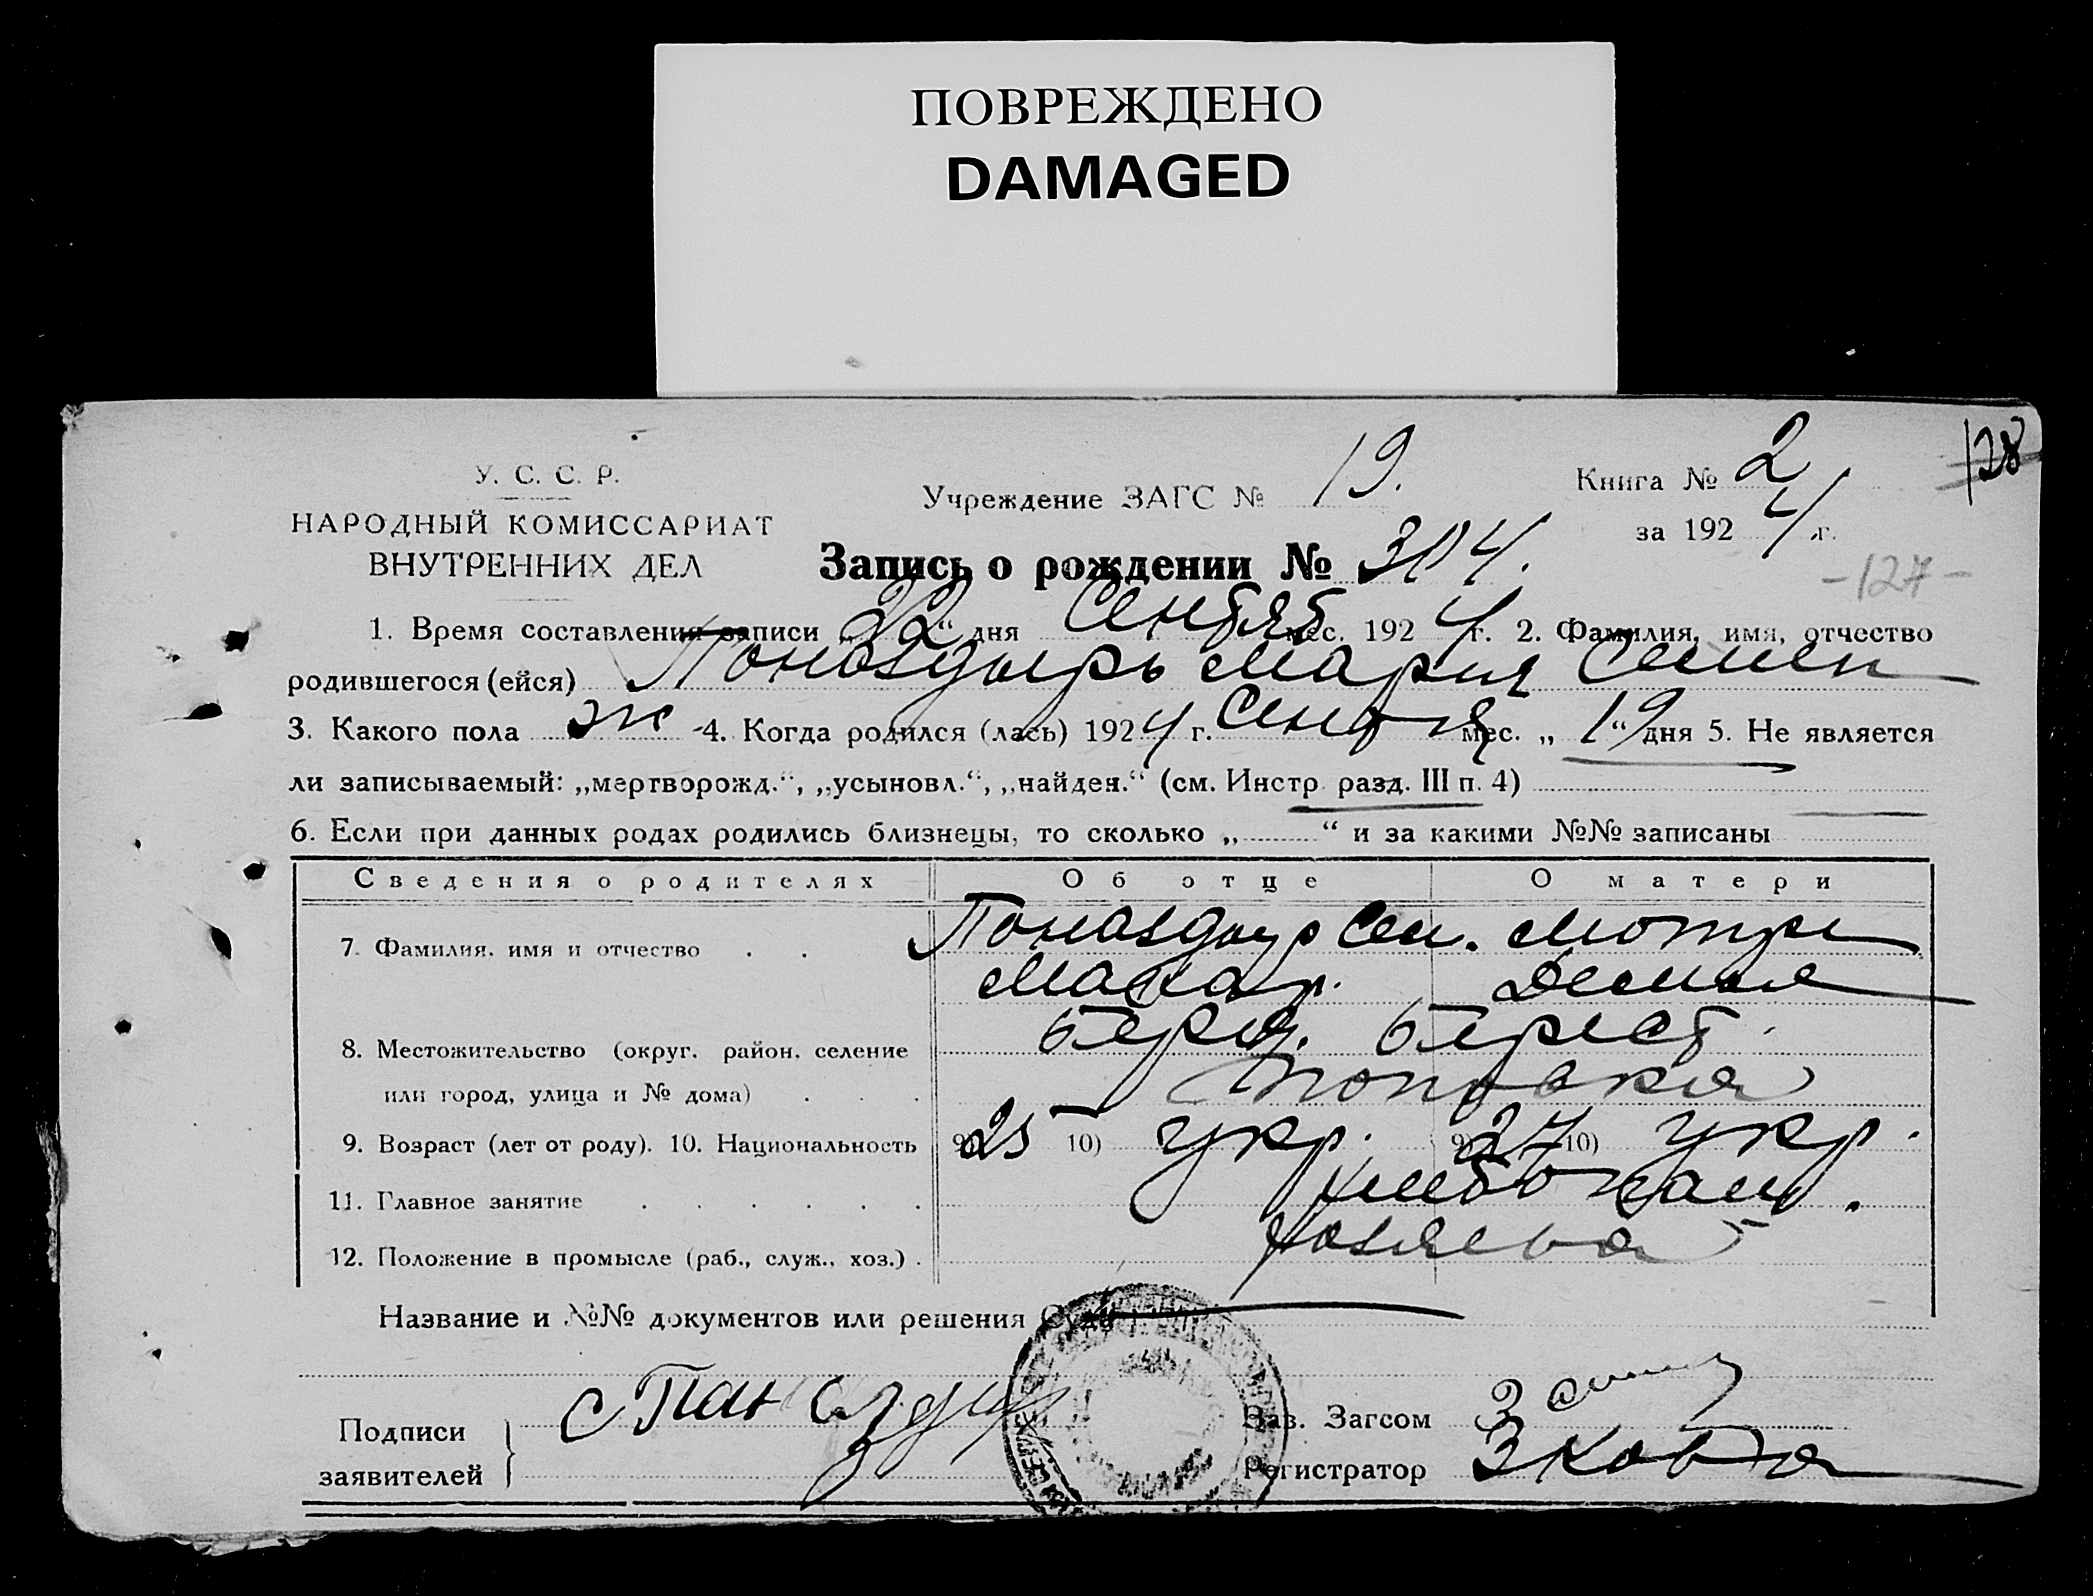 ПОВРЕЖДЕНО
DAMAGED
128
У. С. С. Р.
НАРОДНЫЙ КОМИССАРИАТ
ВНУТРЕННИХ ДЕЛ
Учреждение ЗАГС № 19.
Книга № 2
за 1924 г.
Запись о рождении № 314.
-127-
1. Время составления записи „22“ дня Сентяб мес. 1924 г. 2. Фамилия, имя, отчество
родившегося (ейся) Мария Семен
3. Какого пола ж 4. Когда родился (лась) 1924 г. Сентя мес. „19“ дня 5. Не является
ли записываемый: „мертворожд.“, „усыновл.“, „найден.“ (см. Инстр. разд. III п. 4)
6. Если при данных родах родились близнецы, то сколько „ “ и за какими №№ записаны
Сведения о родителях Об отце О матери
7. Фамилия, имя и отчество Сем. Мотри
Макар. Демья
8. Местожительство (округ, район, селение Берд. Берест.
или город, улица и № дома) Поповка
9. Возраст (лет от роду). 10. Национальность 9) 25 10) укр. 9) 27 10) укр.
11. Главное занятие Хлебопаш.
12. Положение в промысле (раб., служ., хоз.) хозяева
Название и №№ документов или решения Суда
Подписи
заявителей
С Паназдир
Зав. Загсом
Регистратор